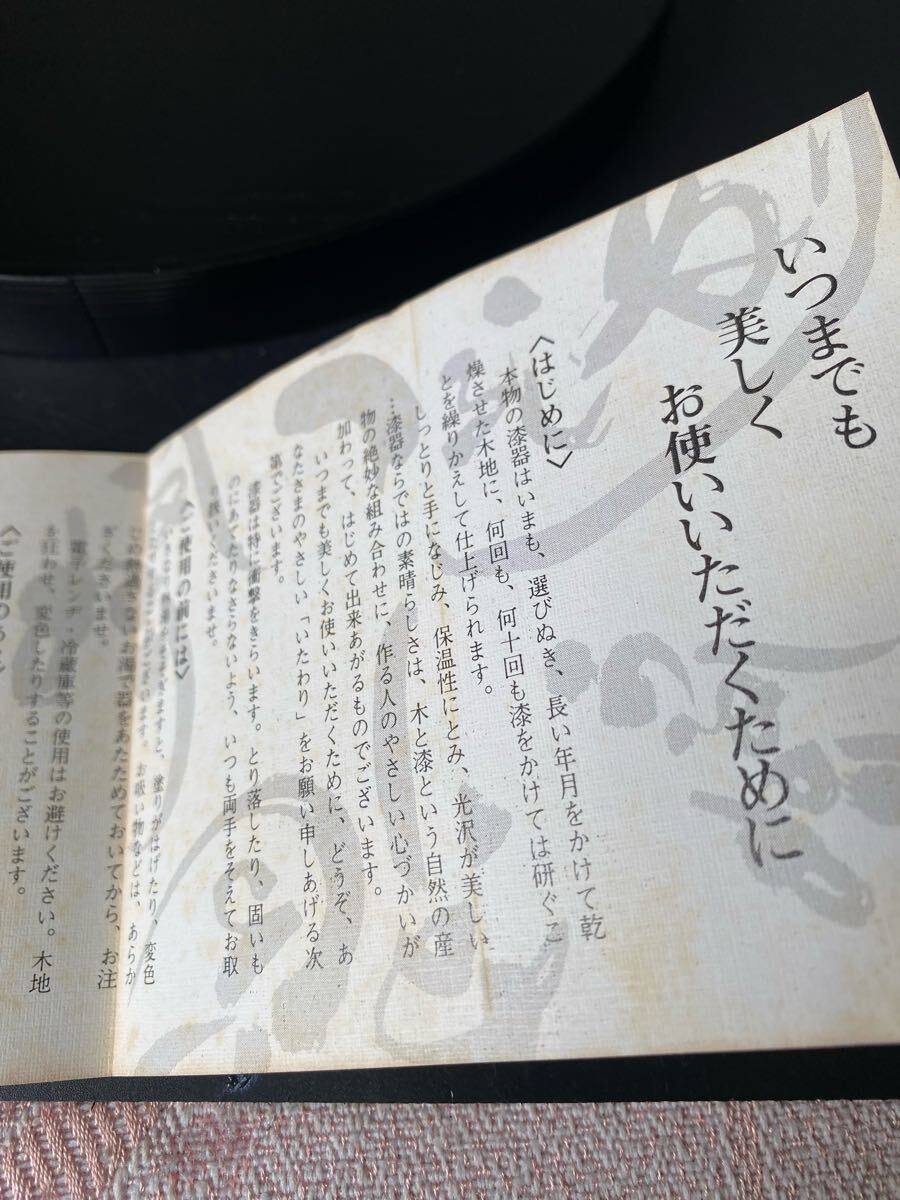 いつまでも
美しく
お使いいただくために
〈はじめに〉
本物の漆器はいまも、選びぬき、長い年月をかけて乾
燥させた木地に、何回も、何十回も漆をかけては研ぐこ
とを繰りかえして仕上げられます。
しっとりと手になじみ、保温性にとみ、光沢が美しい
…漆器ならではの素晴らしさは、木と漆という自然の産
物の絶妙な組み合わせに、作る人のやさしい心づかいが
加わって、はじめて出来あがるものでございます。
いつまでも美しくお使いいただくために、どうぞ、あ
なたさまのやさしい「いたわり」をお願い申しあげる次
第でございます。
漆器は特に衝撃をきらいます。とり落したり、固いも
のにあてたりなさらないよう、いつも両手をそえてお取
り扱いくださいませ。
〈ご使用の前には〉
ますと、塗りがはげたり、変色
ございます。お吸い物などは、あらか
じめ熱過ぎないお湯で器をあたためておいてから、お注
ぎくださいませ。
電子レンジ・冷蔵庫等の使用はお避けください。木地
を狂わせ、変色したりすることがございます。
〈ご使用のあと